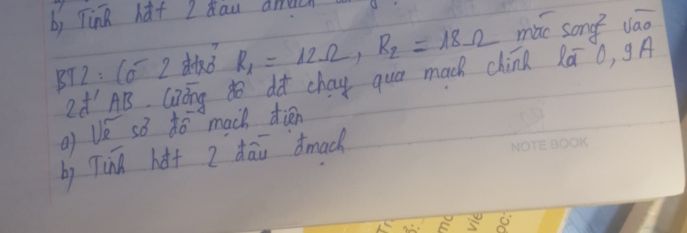 b) Tính hđt 2 đầu đmạch
BT2: Có 2 đtrở R₁ = 12Ω, R₂ = 18Ω mắc song² vào
2đ' AB. Cường độ dđ chạy qua mạch chính là 0,9A
a) Vẽ sơ đồ mạch điện
b) Tính hđt 2 đầu đmạch
NOTE BOOK